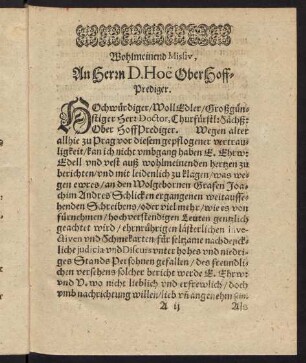 Wohlmeinend Missiv,
An Herrn D. Hoë OberHoff-
Prediger.
HOchwürdiger/WollEdler/Großgün-
stiger Herr Doctor, Churfürstl: Sächß:
Ober HoffPrediger. Wegen alter
allhie zu Prag vor diesem gepflogener vertrau-
ligkeit/ kan ich nicht vmbgang haben E. Ehrw:
Edell vnd vest auß wohlmeinenden hertzen zu
berichten/ vnd mit leidenlich zu klagen/ was we-
gen ewres/ an den Wolgebornen Grafen Joa-
chim Andres Schlicken ergangenen weitausse-
henden Schreibens/ oder viel mehr/ wie es von
fürnehmen/ hochverstendigen Leuten genntlich
geachtet wird/ ehrnrührigen lästerlichen Inve-
ctiven vnd Schmekarten für selzame nachdenck-
liche judicia vnd Discurs vnter hohes vnd niedri-
ges Stands Persohnen gefallen/ des freundli-
chen versehens solcher bericht werde E. Ehrw:
vnd V. wo nicht lieblich vnd erfrewlich/ doch
vmb nachrichtung willen/ lieb vñ angenehm sein.
A ij Als